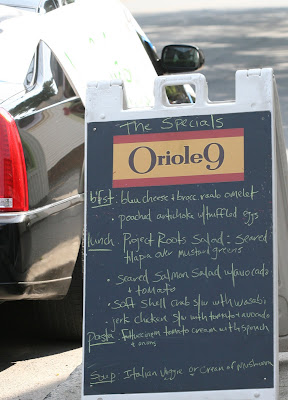 The Specials
Oriole9
b'fast: bleu cheese + brocc. raab omelet
• poached artichoke w/ truffled eggs
lunch: Project Roots Salad = Seared
tilapia over mustard greens
• Seared Salmon Salad w/ avocado
+ tomato
• Soft Shell crab s/w with wasabi
- jerk chicken s/w with tomato + avocado
Pasta: Fettuccine in tomato cream with spinach
+ onions
Soup: Italian Veggie or Cream of Mushroom